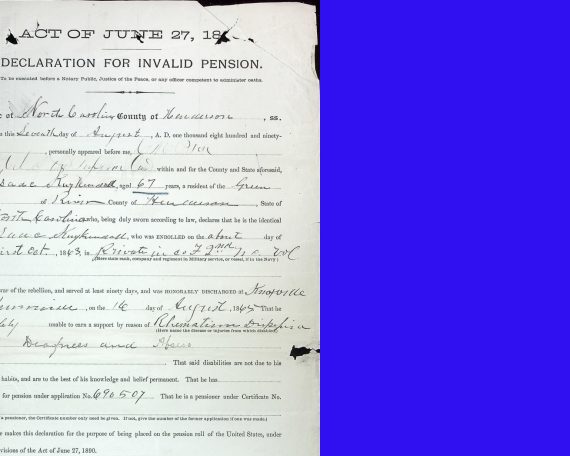 ACT OF JUNE 27, 18
DECLARATION FOR INVALID PENSION.
To be executed before a Notary Public, Justice of the Peace, or any officer competent to administer oaths.
of North Carolina County of Henderson, ss.
this Seventh day of August, A. D. one thousand eight hundred and ninety-
, personally appeared before me,
within and for the County and State aforesaid,
Isaac Kuykendall, aged 67 years, a resident of the Green
River County of Henderson, State of
North Carolina who, being duly sworn according to law, declares that he is the identical
Isaac Kuykendall, who was ENROLLED on the about day of
first Oct, 1863, in Private in Co F 2nd N.C. Vol
(Here state rank, company and regiment in Military service, or vessel, if in the Navy.)
war of the rebellion, and served at least ninety days, and was HONORABLY DISCHARGED at Knoxville
, on the 16 day of August, 1865 That he
unable to earn a support by reason of Rhematism
(Here name the disease or injuries from which disabled.)
and
That said disabilities are not due to his
habits, and are to the best of his knowledge and belief permanent. That he has
for pension under application No. 690507 That he is a pensioner under Certificate No.
a pensioner, the Certificate number only need be given. If not, give the number of the former application if one was made.)
makes this declaration for the purpose of being placed on the pension roll of the United States, under
visions of the Act of June 27, 1890.